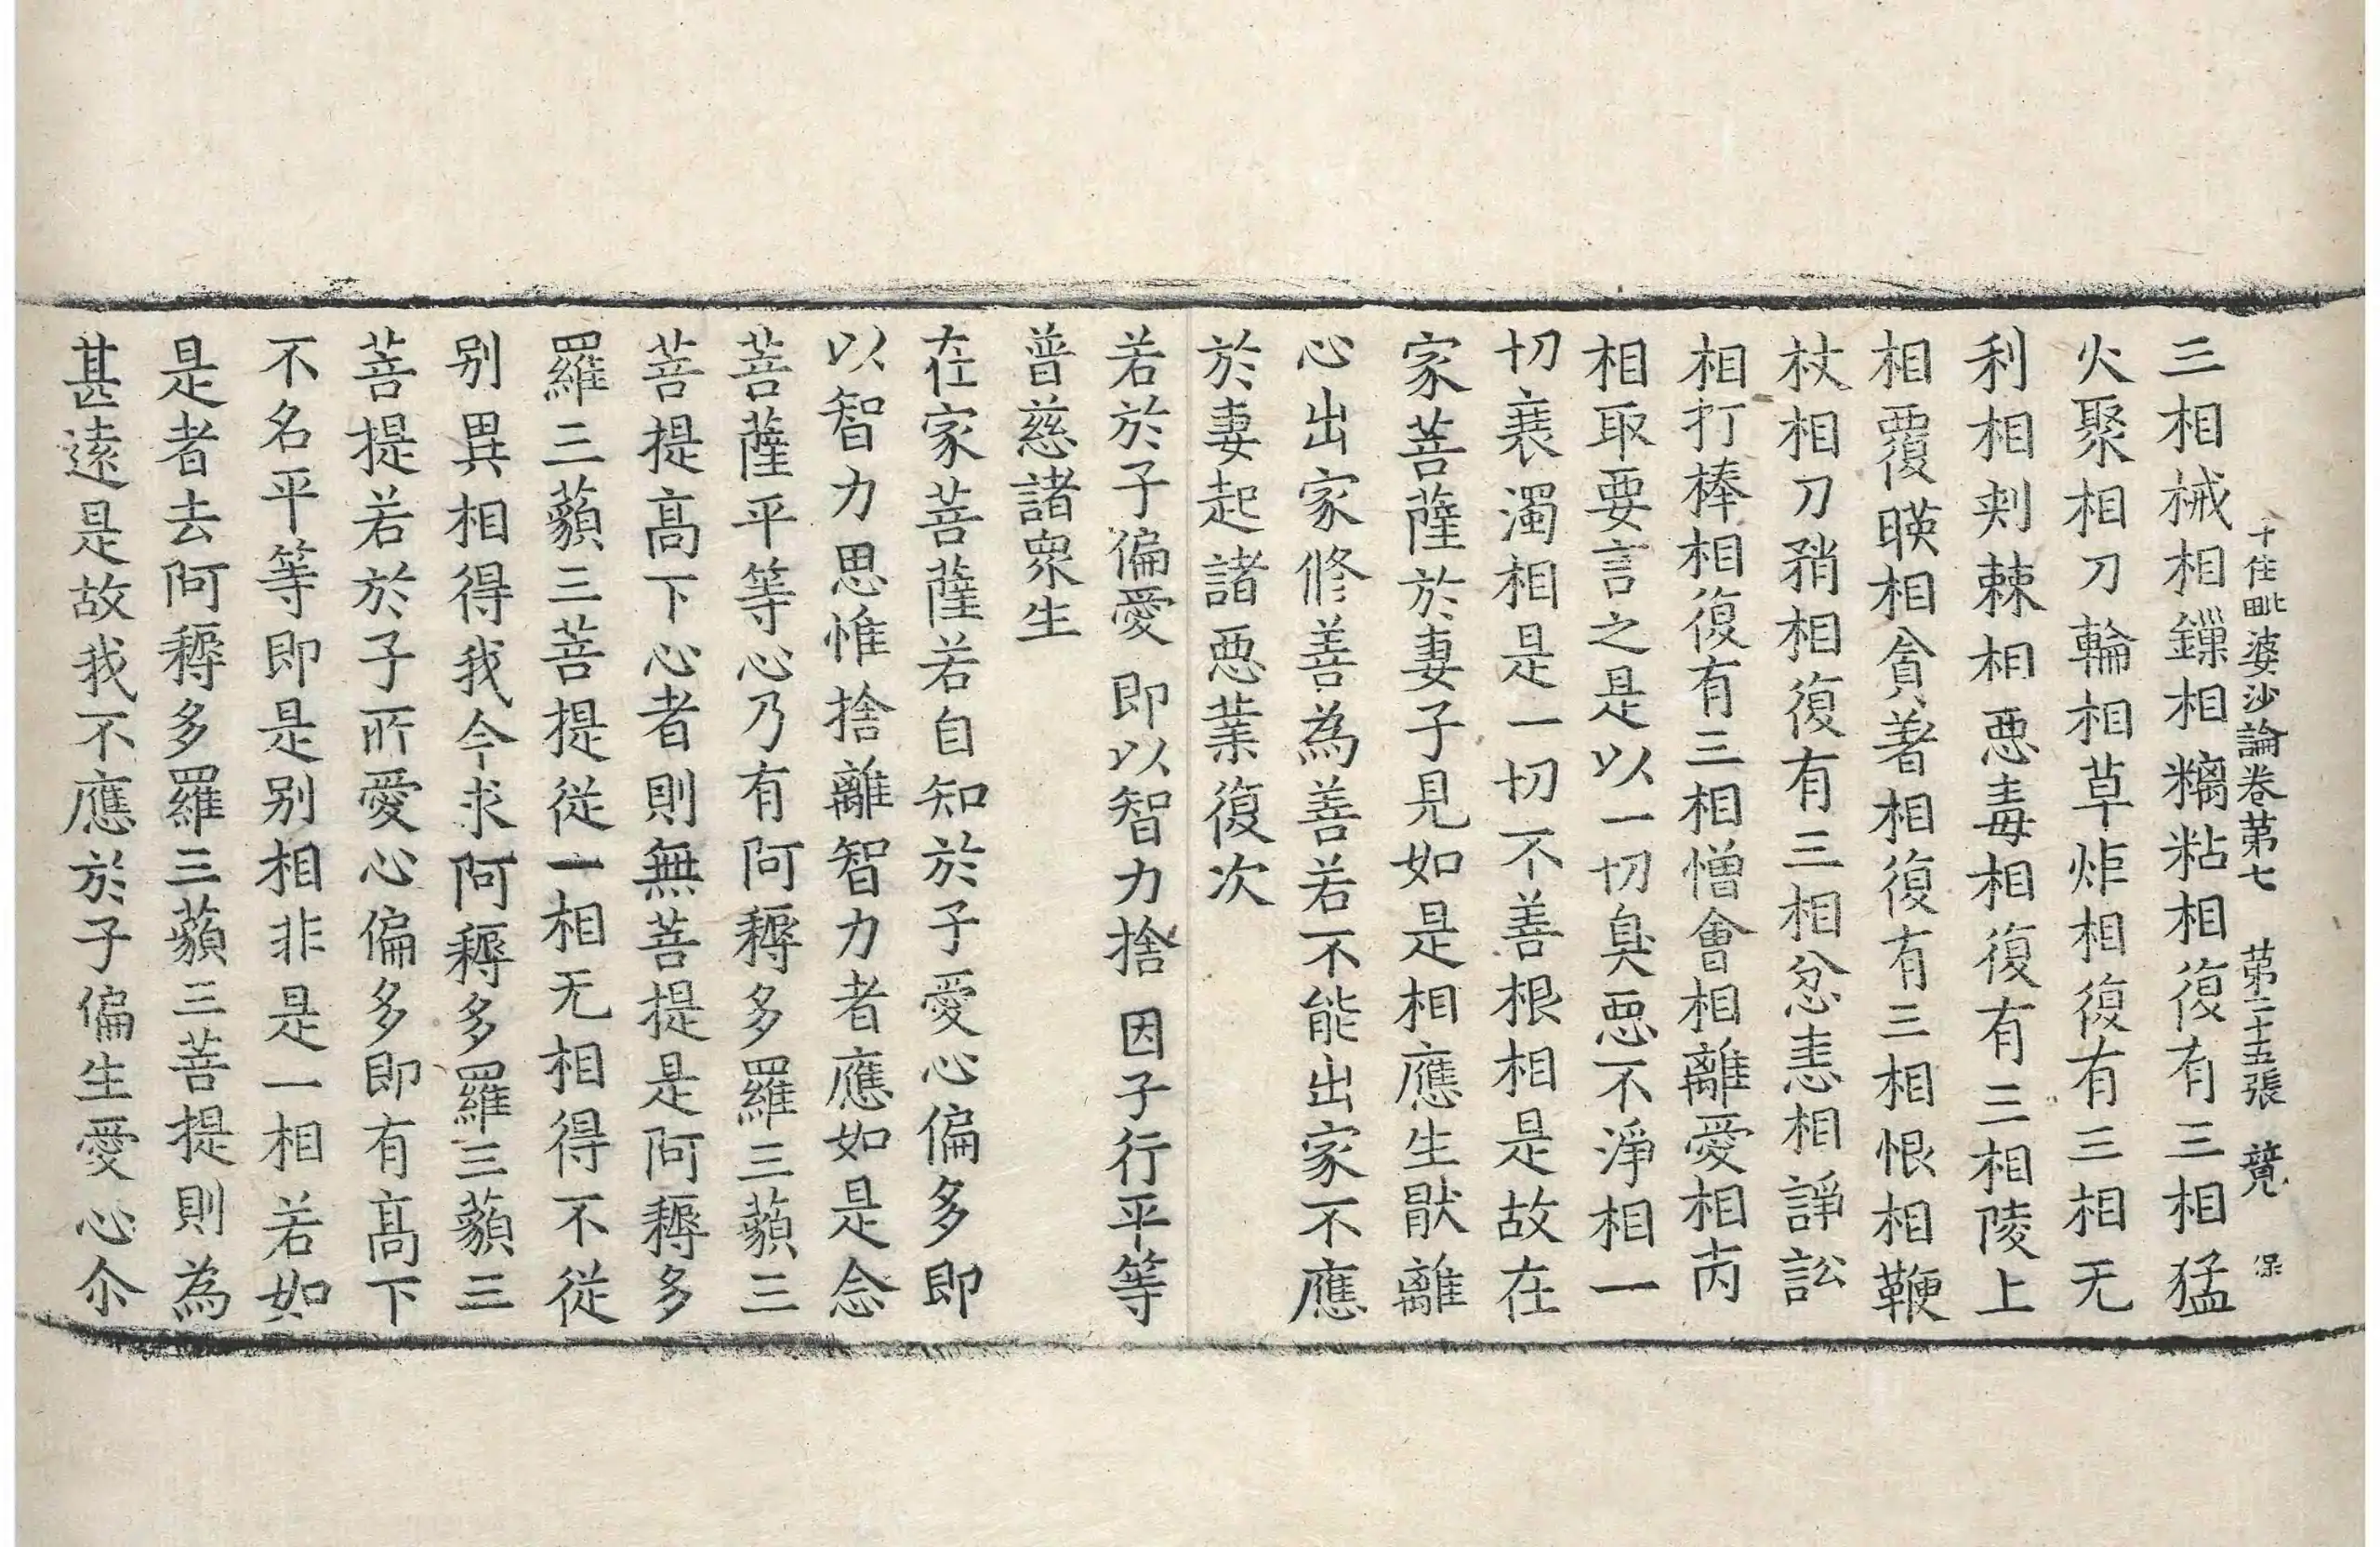 十住毗婆沙論卷苐七　苐二十五張　競　保
三相械相鏁相黐粘相復有三相猛
火聚相刀輪相草炸相復有三相无
利相刾棘相悪毒相復有三相陵上
相覆暎相貪著相復有三相恨相鞭
杖相刀矟相復有三相忿恚相諍訟
相打棒相復有三相憎會相離愛相
相取要言之是以一切臭悪不淨相一
切衰濁相是一切不善根相是故在
家菩薩於妻子見如是相應生猒離
心出家修善為善若不能出家不應
於妻起諸悪業復次
若於子偏愛　即以智力捨　因子行平等
普慈諸衆生
在家菩薩若自知於子愛心偏多即
以智力思惟捨離智力者應如是念
菩薩平等心乃有阿耨多羅三藐三
菩提高下心者則無菩提是阿耨多
羅三藐三菩提從一相无相得不從
别異相得我今求阿耨多羅三藐三
菩提若於子所愛心偏多即有高下
不名平等即是别相非是一相若如
是者去阿耨多羅三藐三菩提則為
甚遠是故我不應於子偏生愛心尒